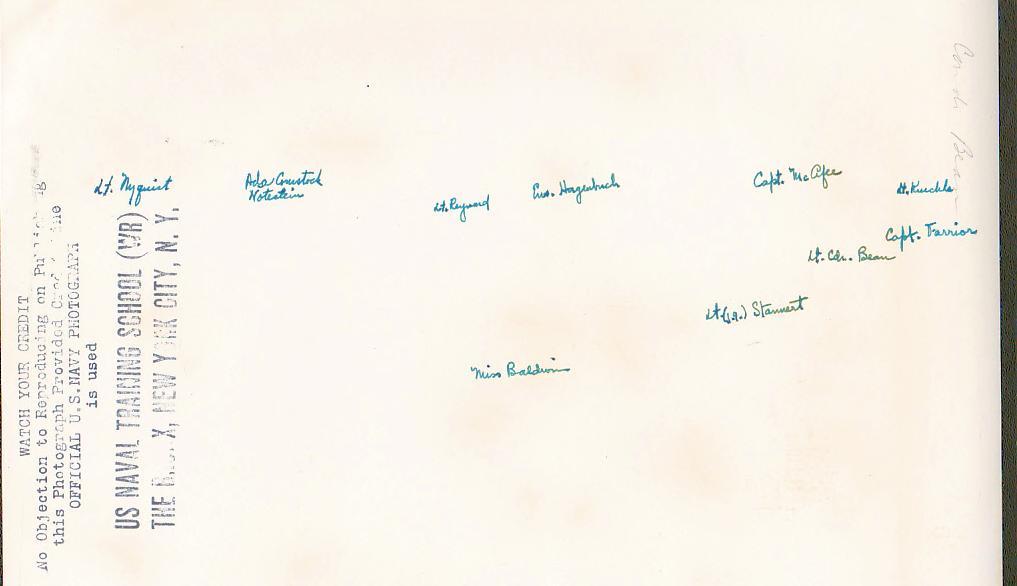 Lt. Nyquist
Ada Comstock
Notestein
Lt. Reynard
Ens. Hogenbuch
Capt. McAfee
Lt. Kuechle
Capt. Farrior
Lt. Cdr. Bean
Lt(j.g.) Stannert
Miss Baldwin
WATCH YOUR CREDIT
No Objection to Reproducing on
this Photograph Provided
OFFICIAL U.S.NAVY PHOTOGRAPH
is used
US NAVAL TRAINING SCHOOL (WR)
THE NEW YORK CITY, N. Y.
Bean